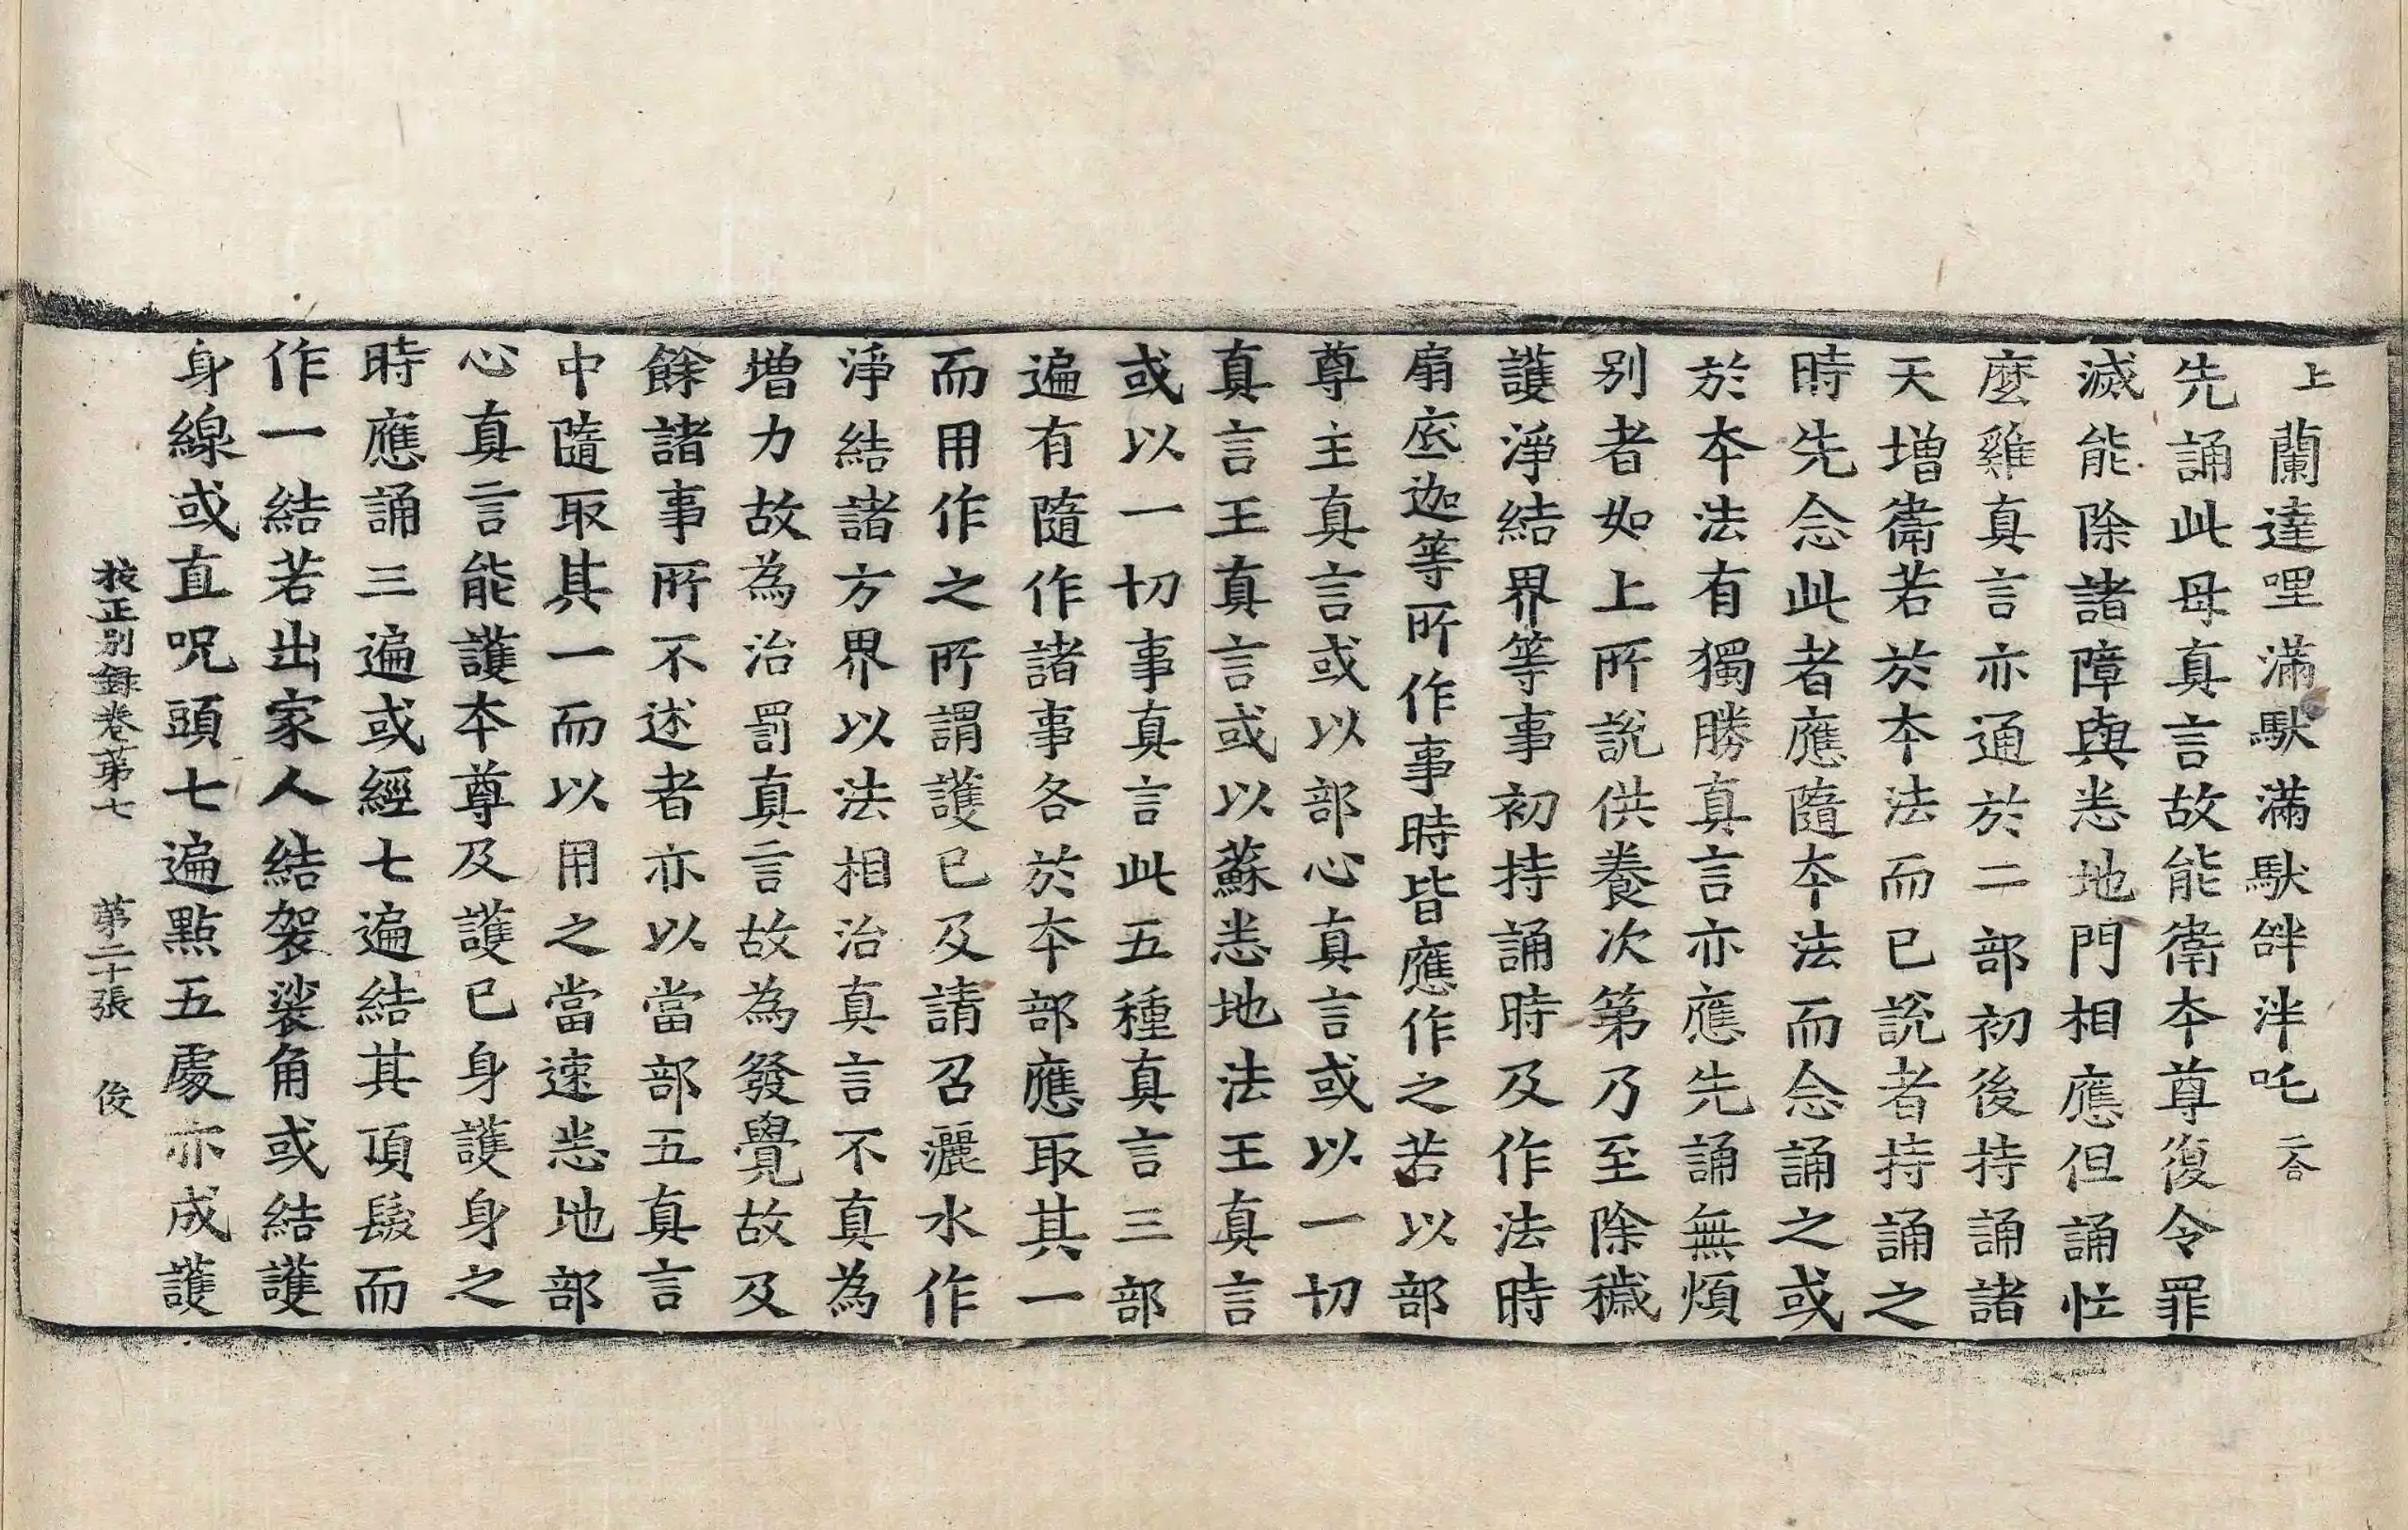 上蘭達哩滿馱滿馱絆泮吒二合
先誦此母真言故能衛本尊復令罪
滅能除諸障與悉地門相應但誦忙
麼雞真言亦通於二部初後持誦諸
天增衛若於本法而已說者持誦之
時先念此者應隨本法而念誦之或
於本法有獨勝真言亦應先誦無煩
別者如上所說供養次第乃至除穢
護淨結界等事初持誦時及作法時
扇底迦等所作事時皆應作之若以部
尊主真言或以部心真言或以一切
真言王真言或以蘇悉地法王真言
或以一切事真言此五種真言三部
遍有隨作諸事各於本部應取其一
而用作之所謂護已及請召灑水作
淨結諸方界以法相治真言不真為
增力故為治罰真言故為發覺故及
餘諸事所不述者亦以當部五真言
中隨取其一而以用之當速悉地部
心真言能護本尊及護已身護身之
時應誦三遍或經七遍結其頂髮而
作一結若出家人結袈裟角或結護
身線或直呪頭七遍點五處亦成護
挍正别録卷第七　第二十張　俊